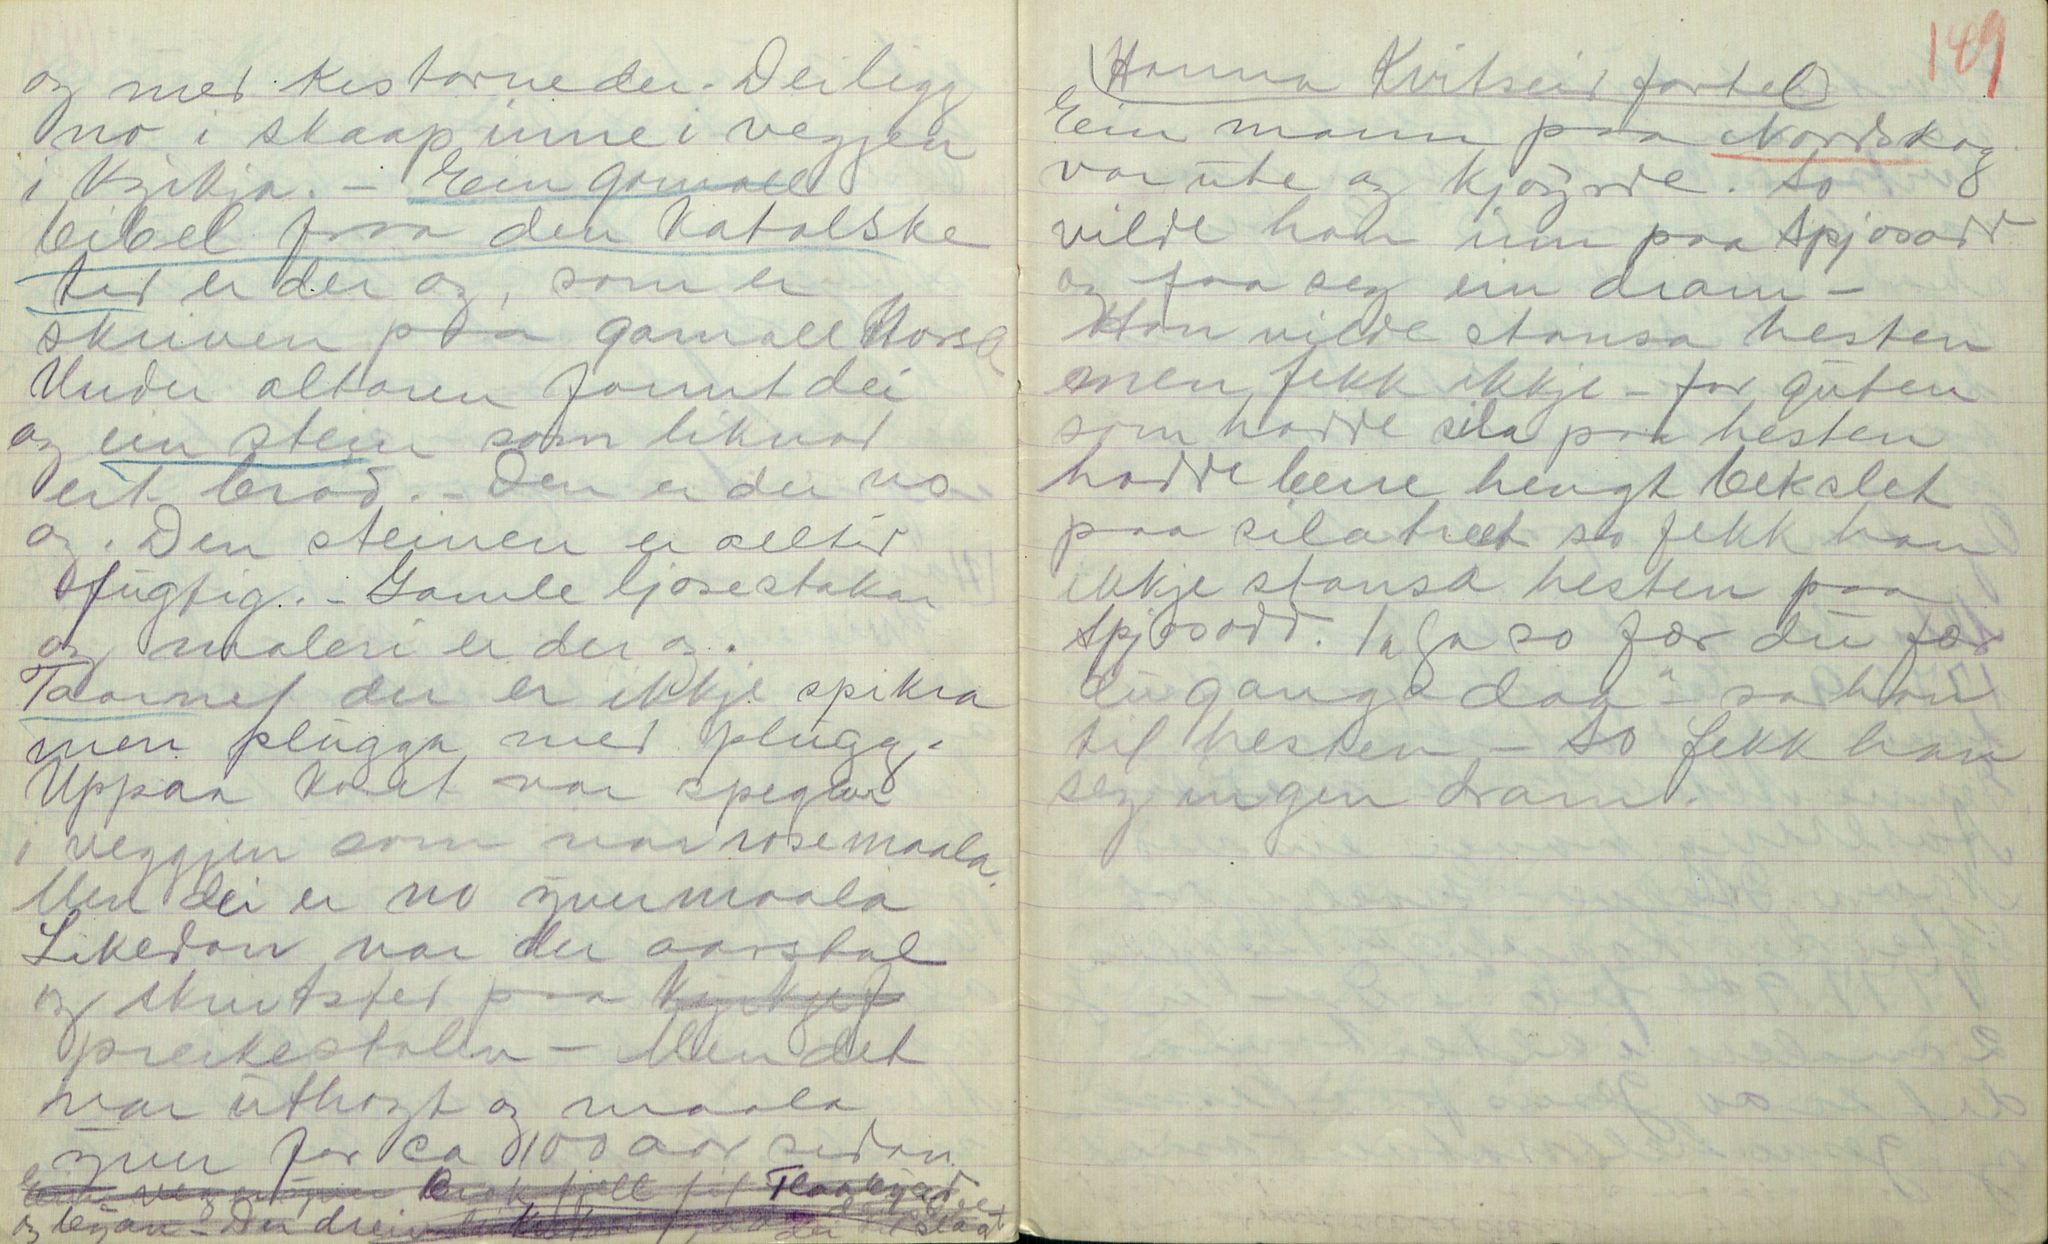 og med kistorne der. Dei ligg
no i skaap inne i veggjen
i Kyrkja. - Ein gamall
bibel fraa den Katolske
tid er der og, som er
skriven paa gamall Norsk
Under altaren fannt dei
og ein stein som liknad
eit brød. - Den er der no
og. Den steinen er alltid
fugtig. - Gamle ljosestakar
og maleri er der og.
Taarnet der er ikkje spikra
men plugga med plugg.
Uppaa Koret var speglar
i veggjen som var rosemaala.
Men dei er no yvermaala
Likedan var der aarstal
og skrivtsted paa Kyrkje
preikestolen - Men det
var uthogt og maala
yver for ca 100 aar sidan.
fjell til
og byan - Der dreiv
149
Hanna Kvitseid fortel
Ein mann paa Nordskog
var ute og kjøyrde. So
vilde han inn paa Spjosodd
og faa seg ein dram -
Han vilde stansa hesten
men fekk ikkje - for guten
som hadde sila paa hesten
hadde berre hengt bekslet
paa silatreet so fekk han
ikkje stansa hesten paa
Spjosodd. "Ja so fær du fær
du ganga daa" - sa han
til hesten - So fekk han
seg ingen dram.